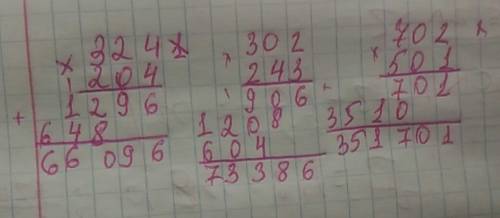 324 x
x 204
1296
+ 648
66096
302
x 243
906
1208
604
73386
702 x
x 501
701
3510
351701